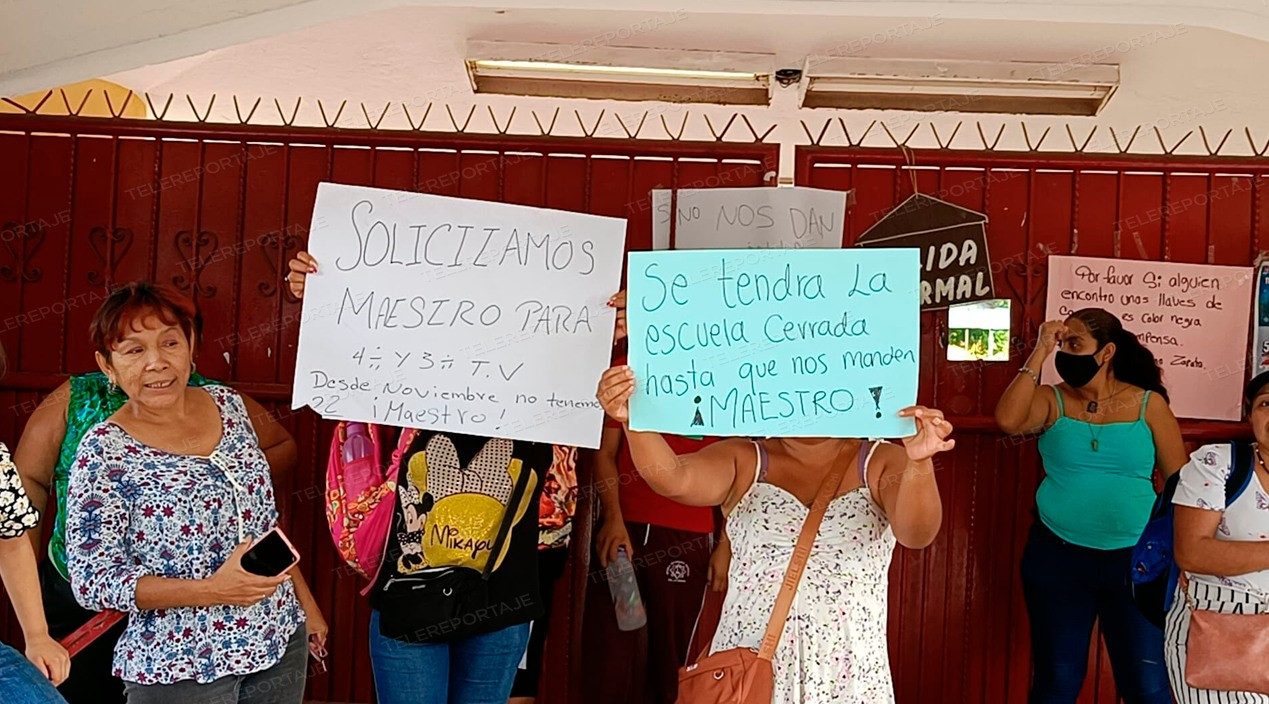 SOLICIZAMOS
MAESZRO PARA
4÷ Y 3÷ T.V
Desde Noviembre no tenemos
22 ¡Maestro!
Se tendra La
escuela Cerrada
hasta que nos manden
¡MAESTRO!
SI NO NOS DAN
LIDA
RMAL
Por favor Si alguien
encontro unas llaves de
es color negra
mpensa.
Zarate.
Mikaya
TELEREPORTAJE